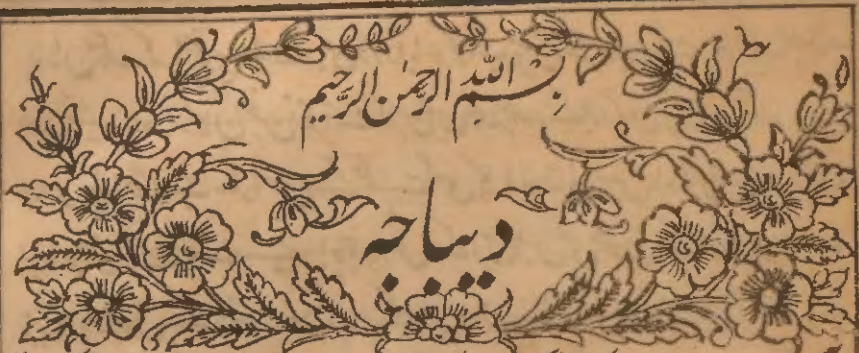 بِسْمِ اللهِ الرَّحْمٰنِ الرَّحِیْمِ
دیباچہ